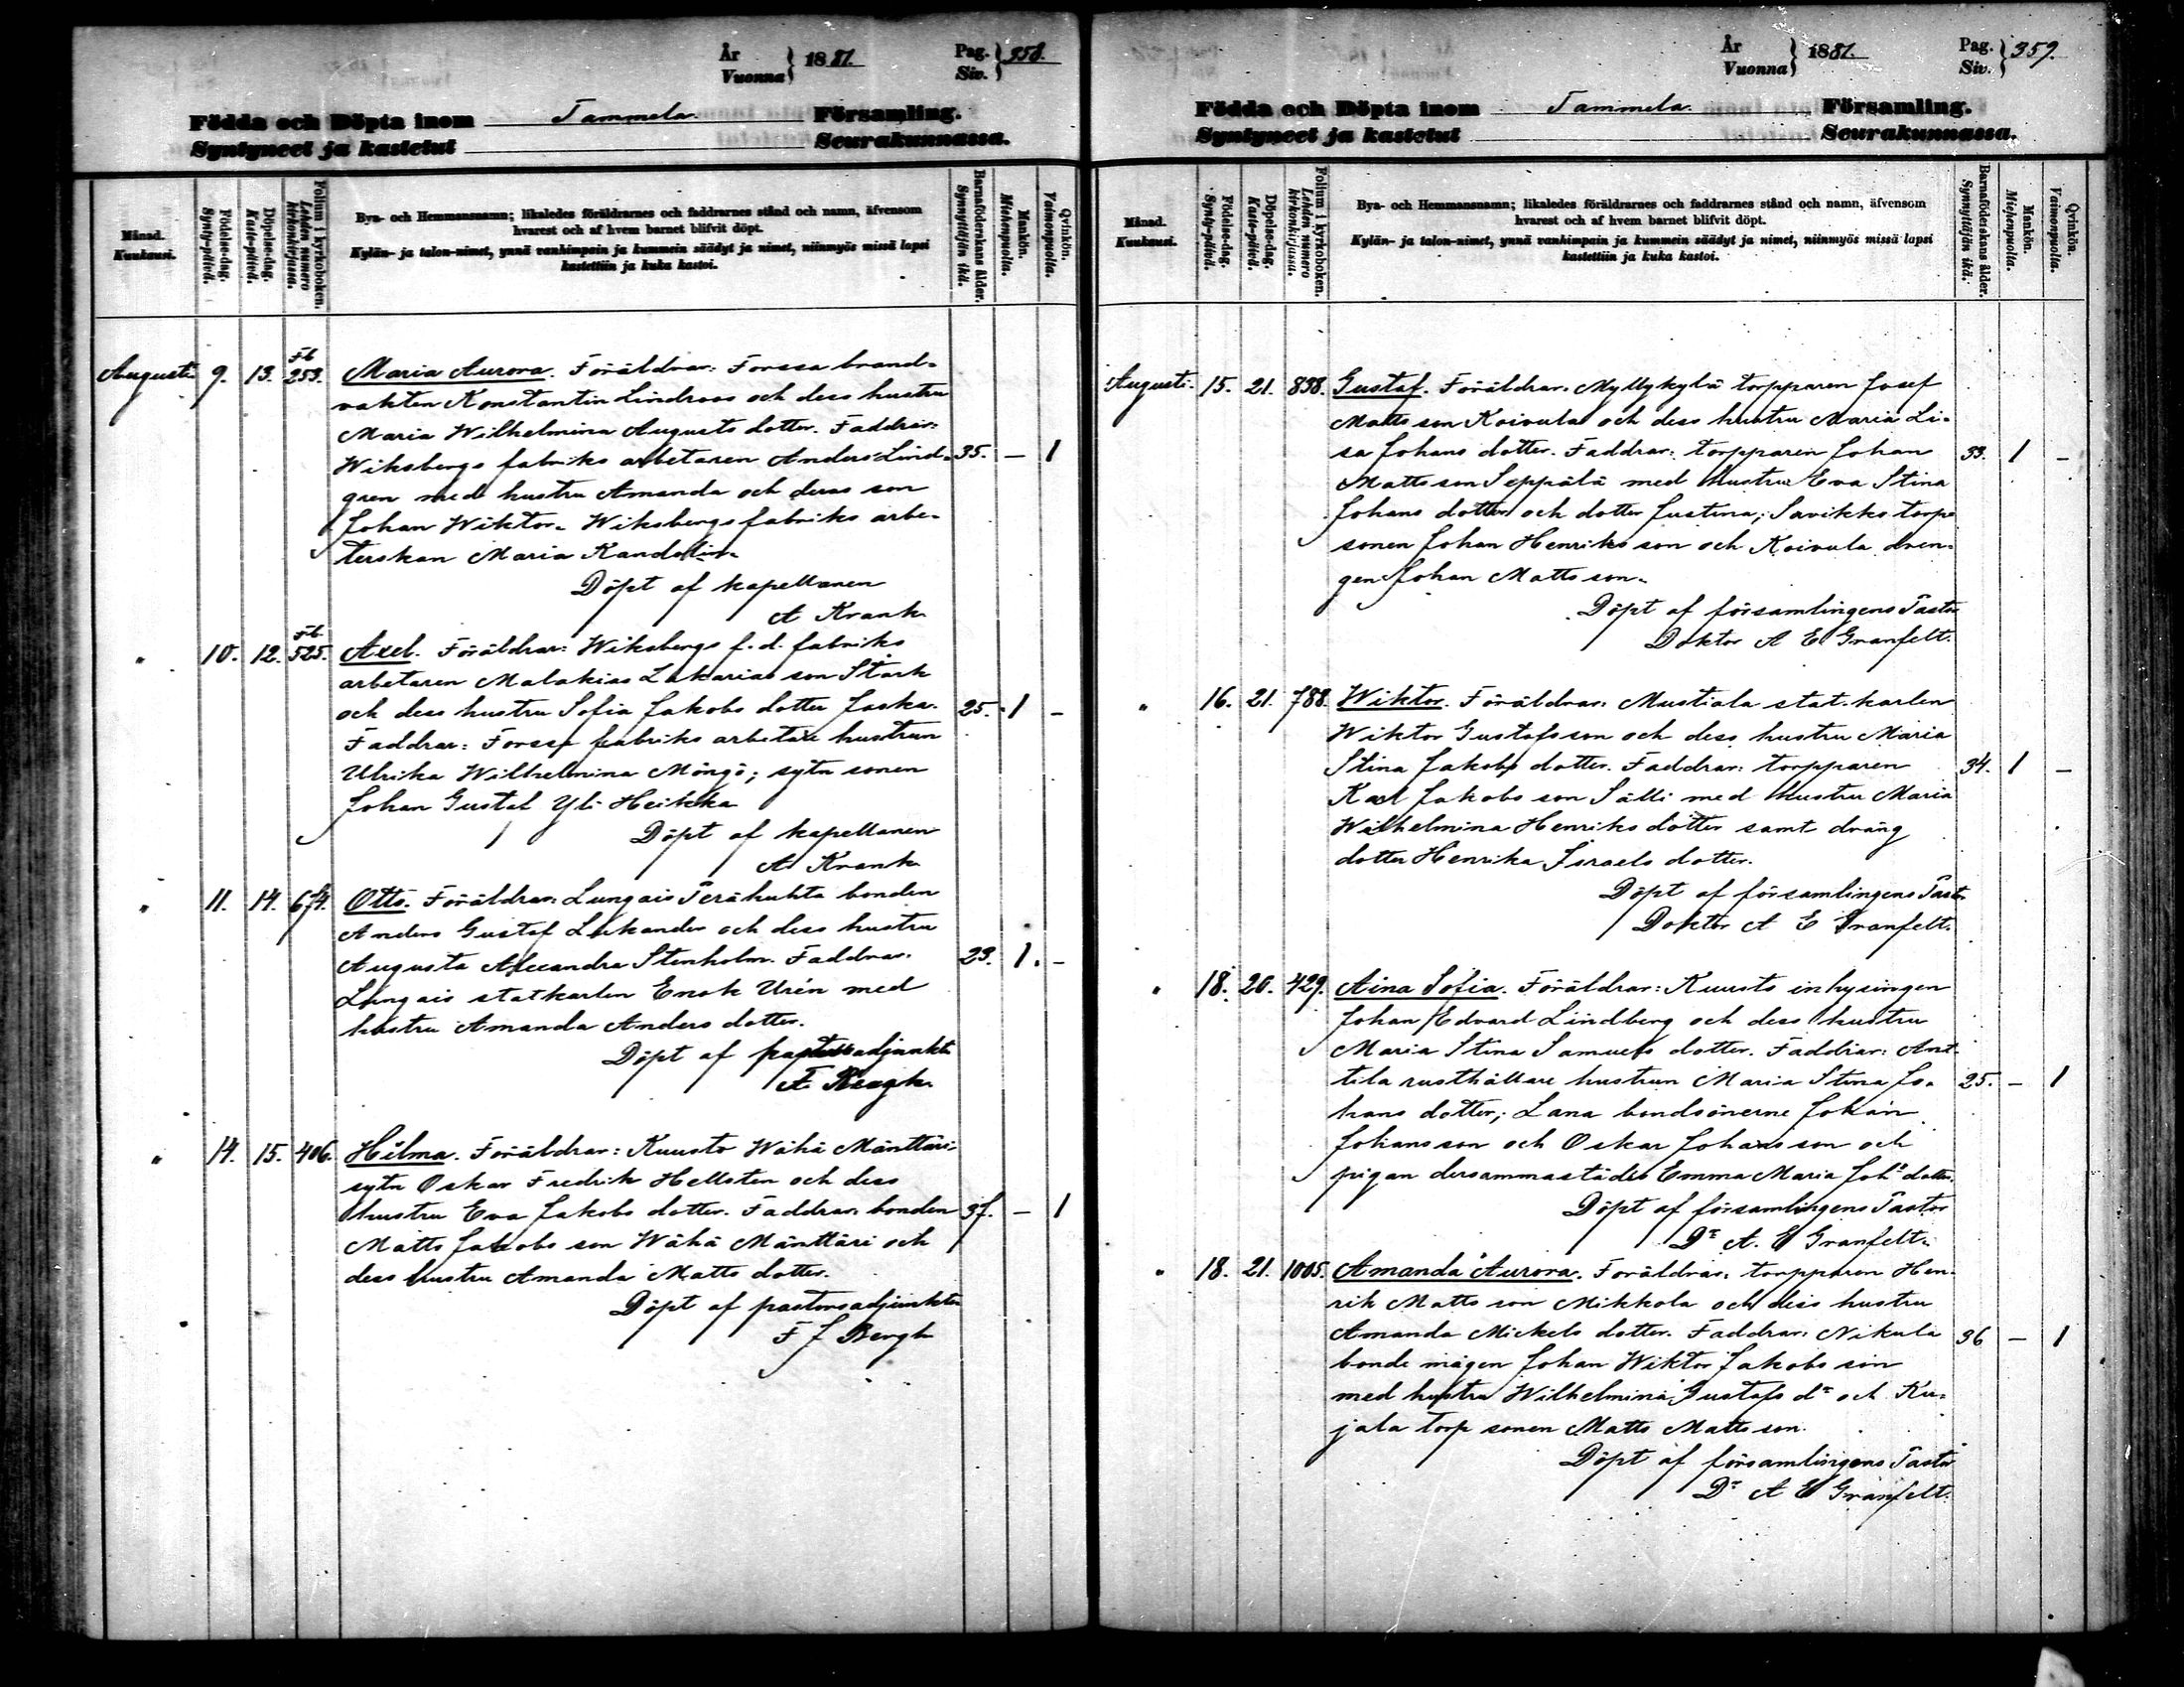 År
Vuonna } 1881.
Pag.
Siv. } 358.
Födda och Döpta inom Tammela Församling.
Syntyneet ja kastetut Seurakunnassa.
Månad.
Kuukausi.
Födelse-dag.
Synty-päivä.
Döpelse-dag.
Kaste-päivä.
Folium i kyrkoboken.
Lehden numero kirkonkirjassa.
Bya- och Hemmansnamn; likaledes föräldrarnes och faddrarnes stånd och namn, äfvensom
hvarest och af hvem barnet blifvit döpt.
Kylän- ja talon-nimet, ynnä vanhimpain ja kummein säädyt ja nimet, niinmyös missä lapsi
kastettiin ja kuka kastoi.
Barnaföderskans ålder.
Synnyttäjän ikä.
Mankön.
Miehenpuolia.
Qvinkön.
Vaimonpuolia.
Augusti 9. 13. Fb 253. Maria Aurora. Föräldrar: Forssa brand-
vakten Konstantin Lindroos och dess hustru
Maria Wilhelmina Augusts dotter. Faddrar:
Wiksbergs fabriks arbetaren Anders Lind- 35. — 1
gren med hustru Amanda och deras son
Johan Wiktor. Wiksbergs fabriks arbe-
terskan Maria Kandolin.
Döpt af kapellanen
A Krank.
" 10. 12. Fb 525. Axel. Föräldrar: Wiksbergs f. d. fabriks
arbetaren Malakias Sakarias son Stark
och dess hustru Sofia Jakobs dotter Jaska. 25. 1 —
Faddrar: Forssa fabriks arbetare hustrun
Ulrika Wilhelmina Möngö; sytn sonen
Johan Gustaf Yli Heikka
Döpt af kapellanen
A Krank
" 11. 14. 674. Otto. Föräldrar: Lungais Perähuhta bonden
Anders Gustaf Lukander och dess hustru
Augusta Alexandra Stenholm. Faddrar: 23. 1. —
Lungais statkarlen Enok Urén med
hustru Amanda Anders dotter.
Döpt af pastorsadjunkten
" 14. 15. 406. Hilma. Föräldrar: Kuusto Wähä Mänttäri
sytn Oskar Fredrik Hellsten och dess
hustru Eva Jakobs dotter. Faddrar: bonden 37. — 1
Matts Jakobs son Wähä Mänttäri och
dess hustru Amanda Matts dotter.
Döpt af pastorsadjunkten
F J Bergh
År
Vuonna } 1881.
Pag.
Siv. } 359.
Födda och Döpta inom Tammela. Församling.
Syntyneet ja kastetut Seurakunnassa.
Månad.
Kuukausi.
Födelse-dag.
Synty-päivä.
Döpelse-dag.
Kaste-päivä.
Folium i kyrkoboken.
Lehden numero kirkonkirjassa.
Bya- och Hemmansnamn; likaledes föräldrarnes och faddrarnes stånd och namn, äfvensom
hvarest och af hvem barnet blifvit döpt.
Kylän- ja talon-nimet, ynnä vanhimpain ja kummein säädyt ja nimet, niinmyös missä lapsi
kastettiin ja kuka kastoi.
Barnaföderskans ålder.
Synnyttäjän ikä.
Mankön.
Miehenpuolia.
Qvinkön.
Vaimonpuolia.
Augusti. 15. 21. 838. Gustaf. Föräldrar: Myllykylä torpparen Josef
Matts son Koivula och dess hustru Maria Li-
sa Johans dotter. Faddrar: torpparen Johan 33. 1 —
Matts son Seppälä med hustru Eva Stina
Johans dotter och dotter Justina; Savikko torp-
sonen Johan Henriks son och Koivula dren-
gen Johan Matts son.
Döpt af församlingens Pastor
Doktor A E Granfelt.
" 16. 21. 788. Wiktor. Föräldrar: Mustiala stat-karlen
Wiktor Gustafsson och dess hustru Maria
Stina Jakobs dotter. Faddrar: torpparen 34. 1 —
Karl Jakobs son Sälli med hustru Maria
Wilhelmina Henriks dotter samt dräng
dotter Henrika Israels dotter.
Döpt af församlingens Pastor
Doktor A E Granfelt.
" 18. 20. 429. Aina Sofia. Föräldrar: Kuusto inhysingen
Johan Edvard Lindberg och dess hustru
Maria Stina Samuels dotter. Faddrar: Ant-
tila rusthållare hustrun Maria Stina Jo- 25. — 1
hans dotter; Lana bondsönerne Johan
Johansson och Oskar Johansson och
pigan dersammastädes Emma Maria Johs dotter.
Döpt af församlingens Pastor
Dr A. E Granfelt.
" 18. 21. 1005. Amanda Aurora. Föräldrar: torpparen Hen-
rik Matts son Mikkola och dess hustru
Amanda Mickels dotter. Faddrar: Nikula 36 — 1
bonde mågen Johan Wiktor Jakobs son
med hustru Wilhelmina Gustafs dr och Ku-
jala torp sonen Matts Matts son.
Döpt af församlingens Pastor
Dr A E Granfelt.